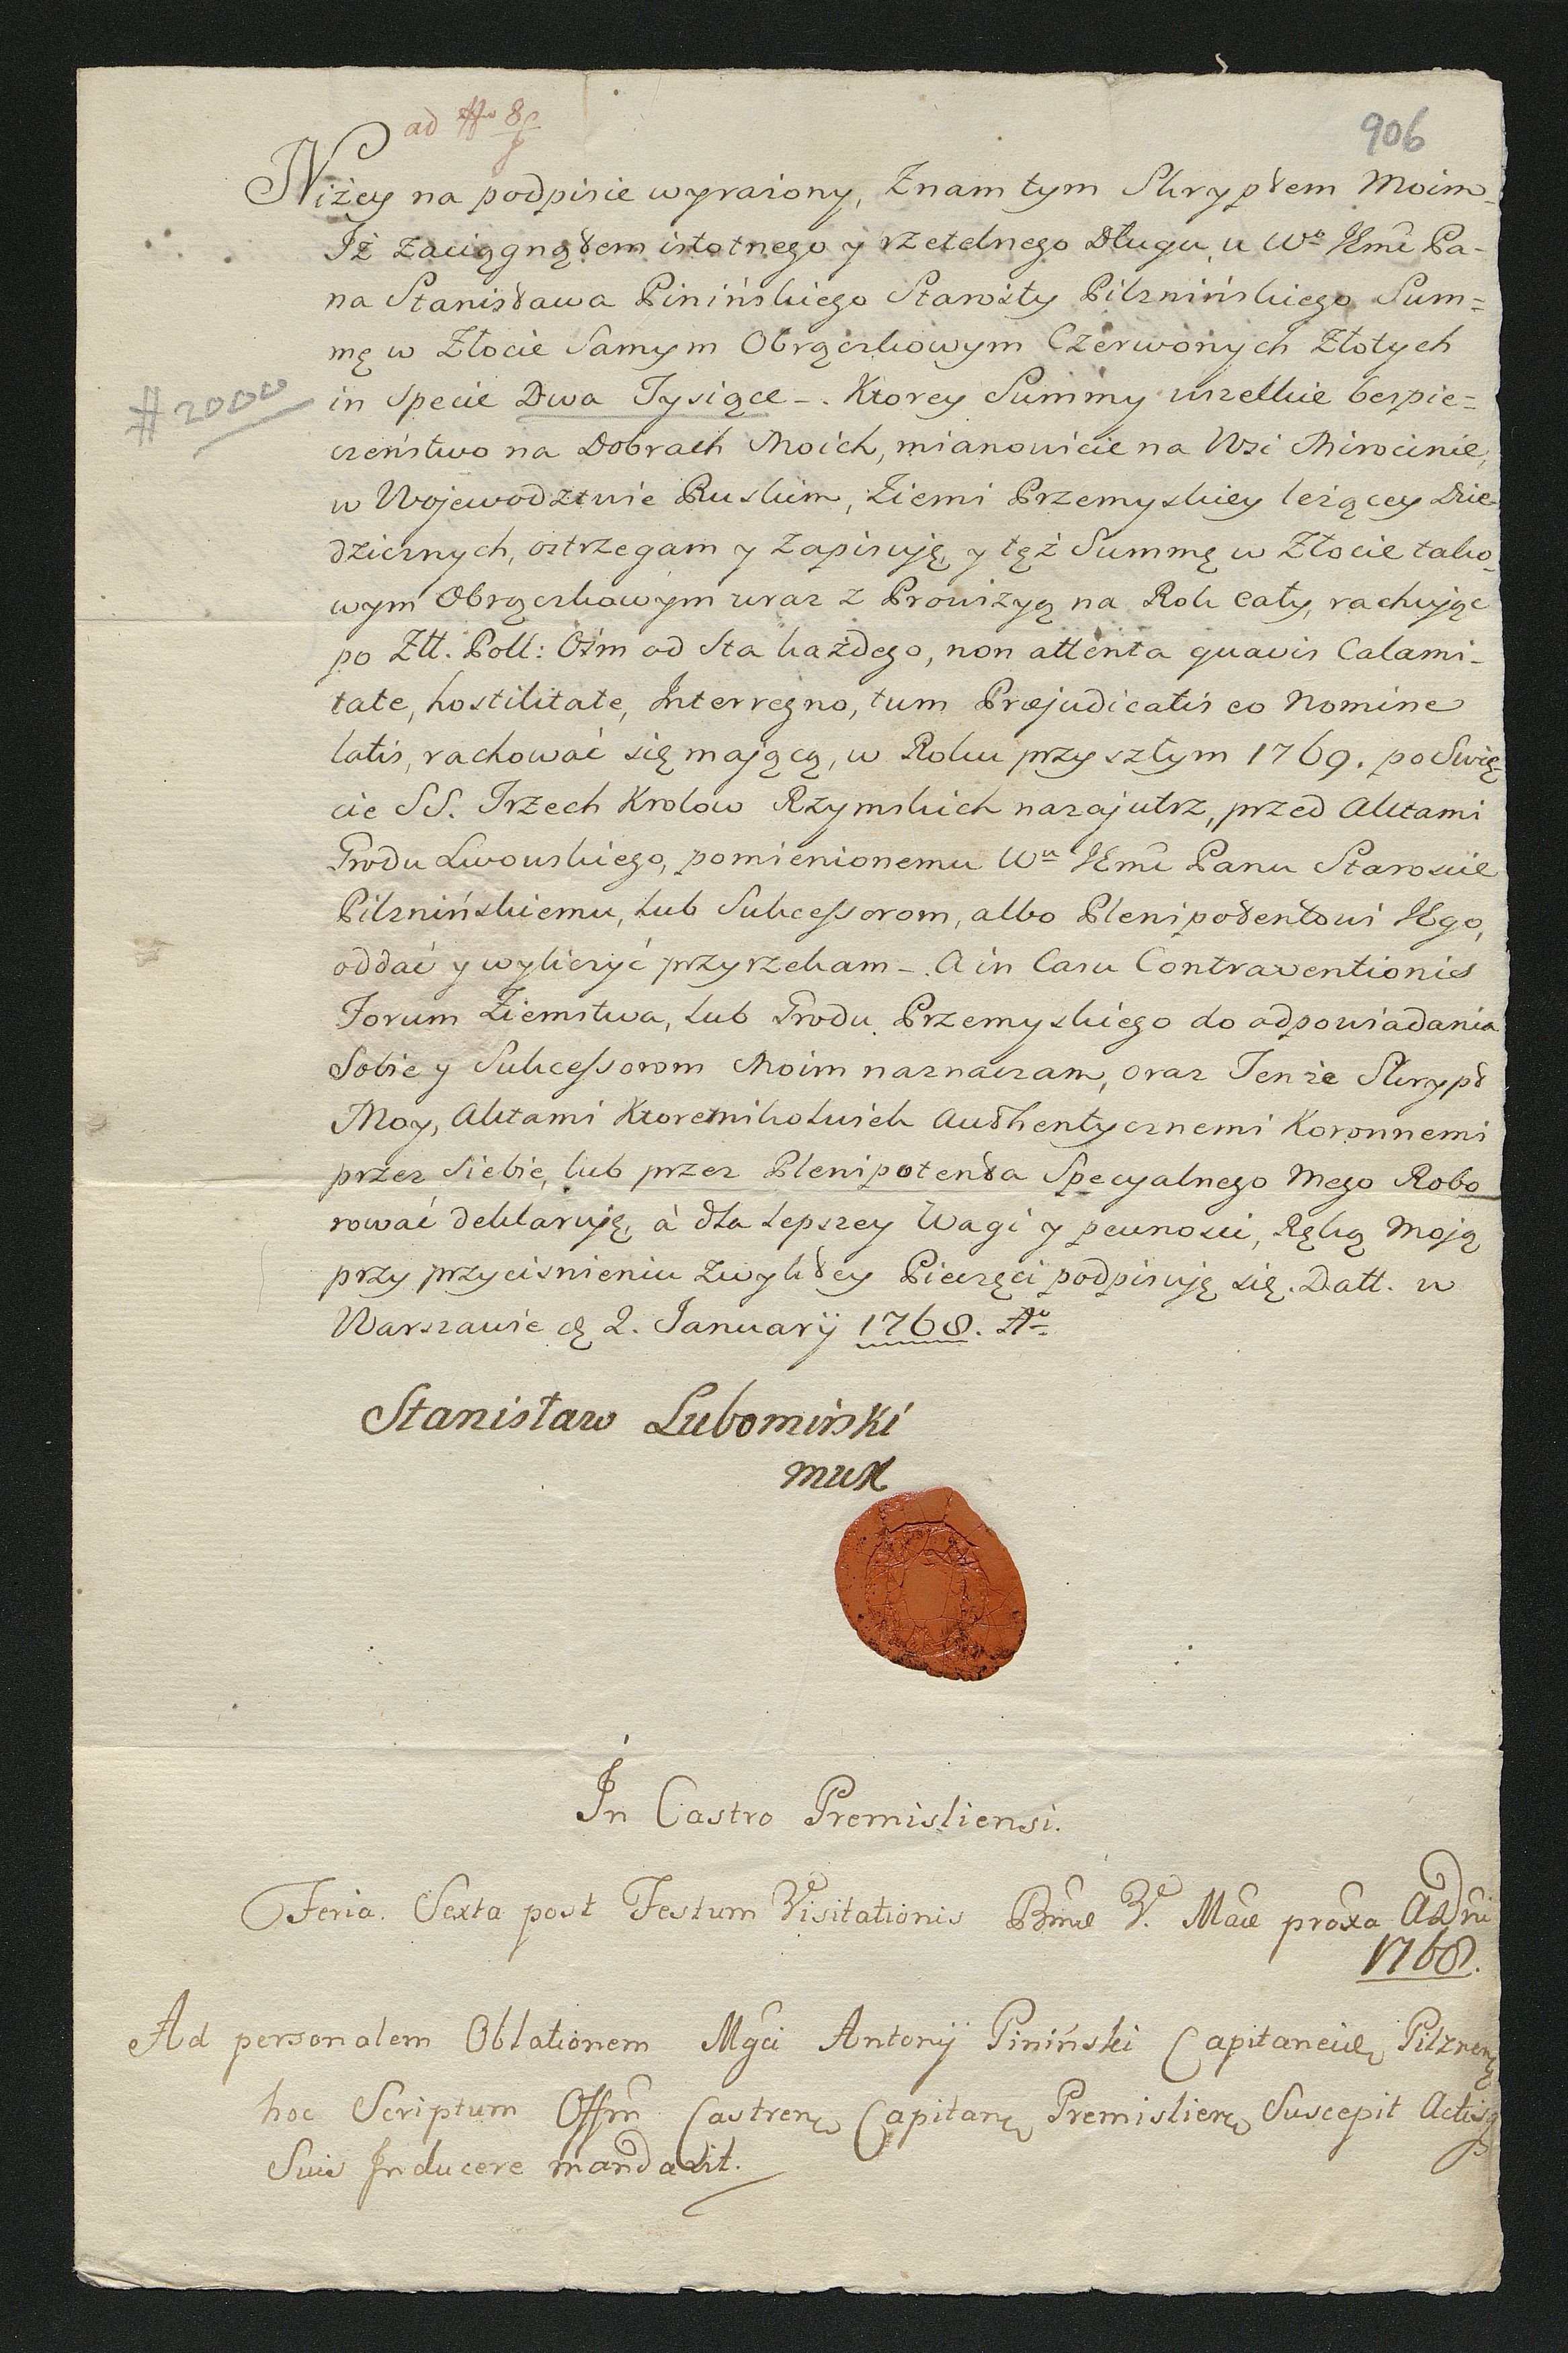 ad
906
Niżey na podpisie wyrażony, Znam tym Skryptem Moim
Iż zaciągnąłem istotnego y rzetelnego Długu, u Wo JEmci Pa-
na Stanisława Pinińskiego Starosty Pilznińskiego Sum=
mę w Złocie Samym Obrączkowym Czerwonych Złotych
# 2000
in specie Dwa Tysiące -. Ktorey Summy wszelkie bespie=
czeństwo na Dobrach Moich, mianowicie na Wsi Mirocinie,
w Wojewodztwie Ruskim, Ziemi Przemyskiey leżącey Dzie-
dzicznych, ostrzegam y Zapisuję, y tęż Summę w Złocie tako-
wym Obrączkowym wraz z Prowizyą na Rok cały, rachując
po Złł. Poll: Ośm od Sta każdego, non attenta quavis Calami-
tate, hostilitate, Interregno, tum Præjudicatis eo Nomine
latis, rachować się mającą, w Roku przyszłym 1769. po Swię-
cie SS. Trzech Krolow Rzymskich nazajutrz, przed Aktami
Grodu Lwowskiego, pomienionemu Wu JEmci Panu Staroscie
Pilznińskiemu, lub Sukcessorom, albo Plenipotentowi JEgo,
oddać y wyliczyć przyrzekam -. A in Casu Contraventionis
Forum Ziemstwa, lub Grodu Przemyskiego do odpowiadania
Sobie y Sukcessorom Moim naznaczam, oraz Tenże Skrypt
Moy, Aktami Ktoremikolwiek Authentycznemi Koronnemi
przez Siebie, lub przez Plenipotenta Specyalnego Mego Robo
rować deklaruję, à dla Lepszey Wagi y pewnosci, Ręką Moją
przy przycisnieniu Zwykłey Pieczęci podpisuję się. Datt. w
Warszawie d. 2. Januarÿ 1768. Ao
Stanisław Lubomirski
mWK
In Castro Premisliensi.
Feria Sexta post Festum Visitationis Bmæ V. Mae proxa ADni
1768.
Ad personalem Oblationem Mgci Antonÿ Piniński Capitaneidę Pilznen
hoc Scriptum Offm Castren Capitan Premislien Suscepit Actisq
Suis Inducere mandavit.